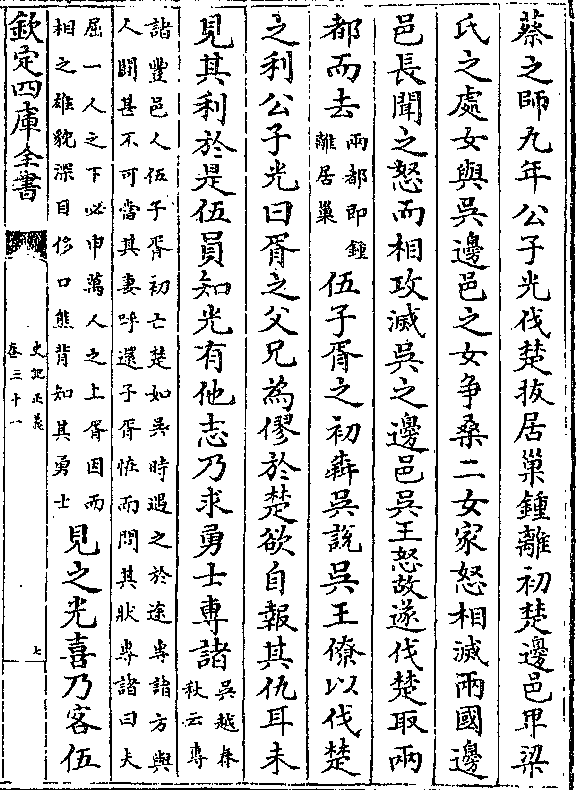 蔡之師九年公子光伐楚拔居巢鍾離初楚邊邑卑梁
氏之處女與吳邊邑之女爭桑二女家怒相滅兩國邊
邑長聞之怒而相攻滅吳之邊邑吳王怒故遂伐楚取兩
都而去兩都即鍾離居巢伍子胥之初犇吳說吳王僚以伐楚
之利公子光曰胥之父兄為僇於楚欲自報其仇耳未
見其利於是伍員知光有他志乃求勇士專諸吳越春秋云專
諸豐邑人伍子胥初亡楚如吳時遇之於途專諸方與
人鬭甚不可當其妻呼還子胥怪而問其狀專諸曰夫
屈一人之下必申萬人之上胥因而
相之雄貌深目侈口熊背知其勇士見之光喜乃客伍
欽定四庫全書
史記正義
卷三十一
七